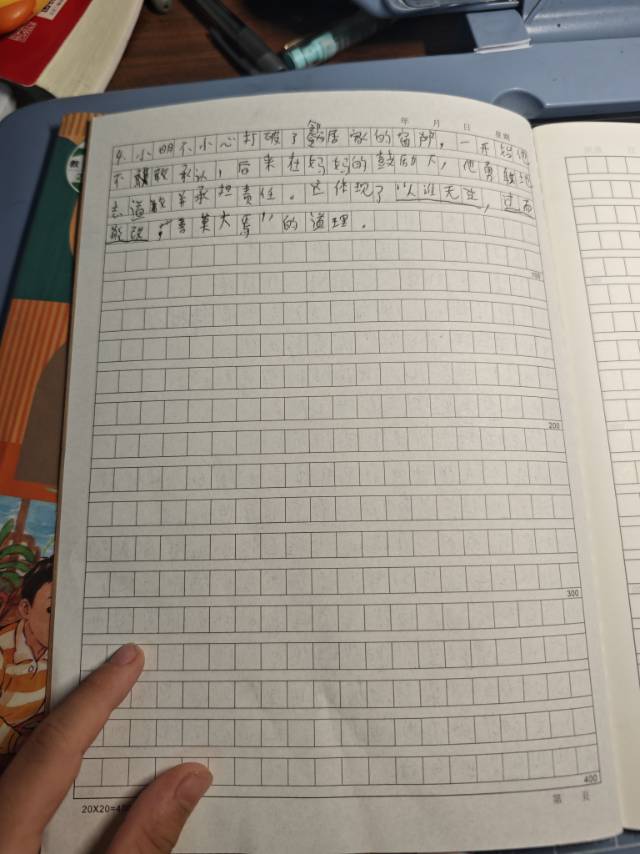 年 月 日 星期
4. 小明不小心打破了邻居家的窗户,一开始他
不敢承认,后来在妈妈的鼓励下,他勇敢地
去道歉并承担责任。这体现了“人谁无过,过而
能改,善莫大焉”的道理。
100
200
300
400
20X20=4
第 页